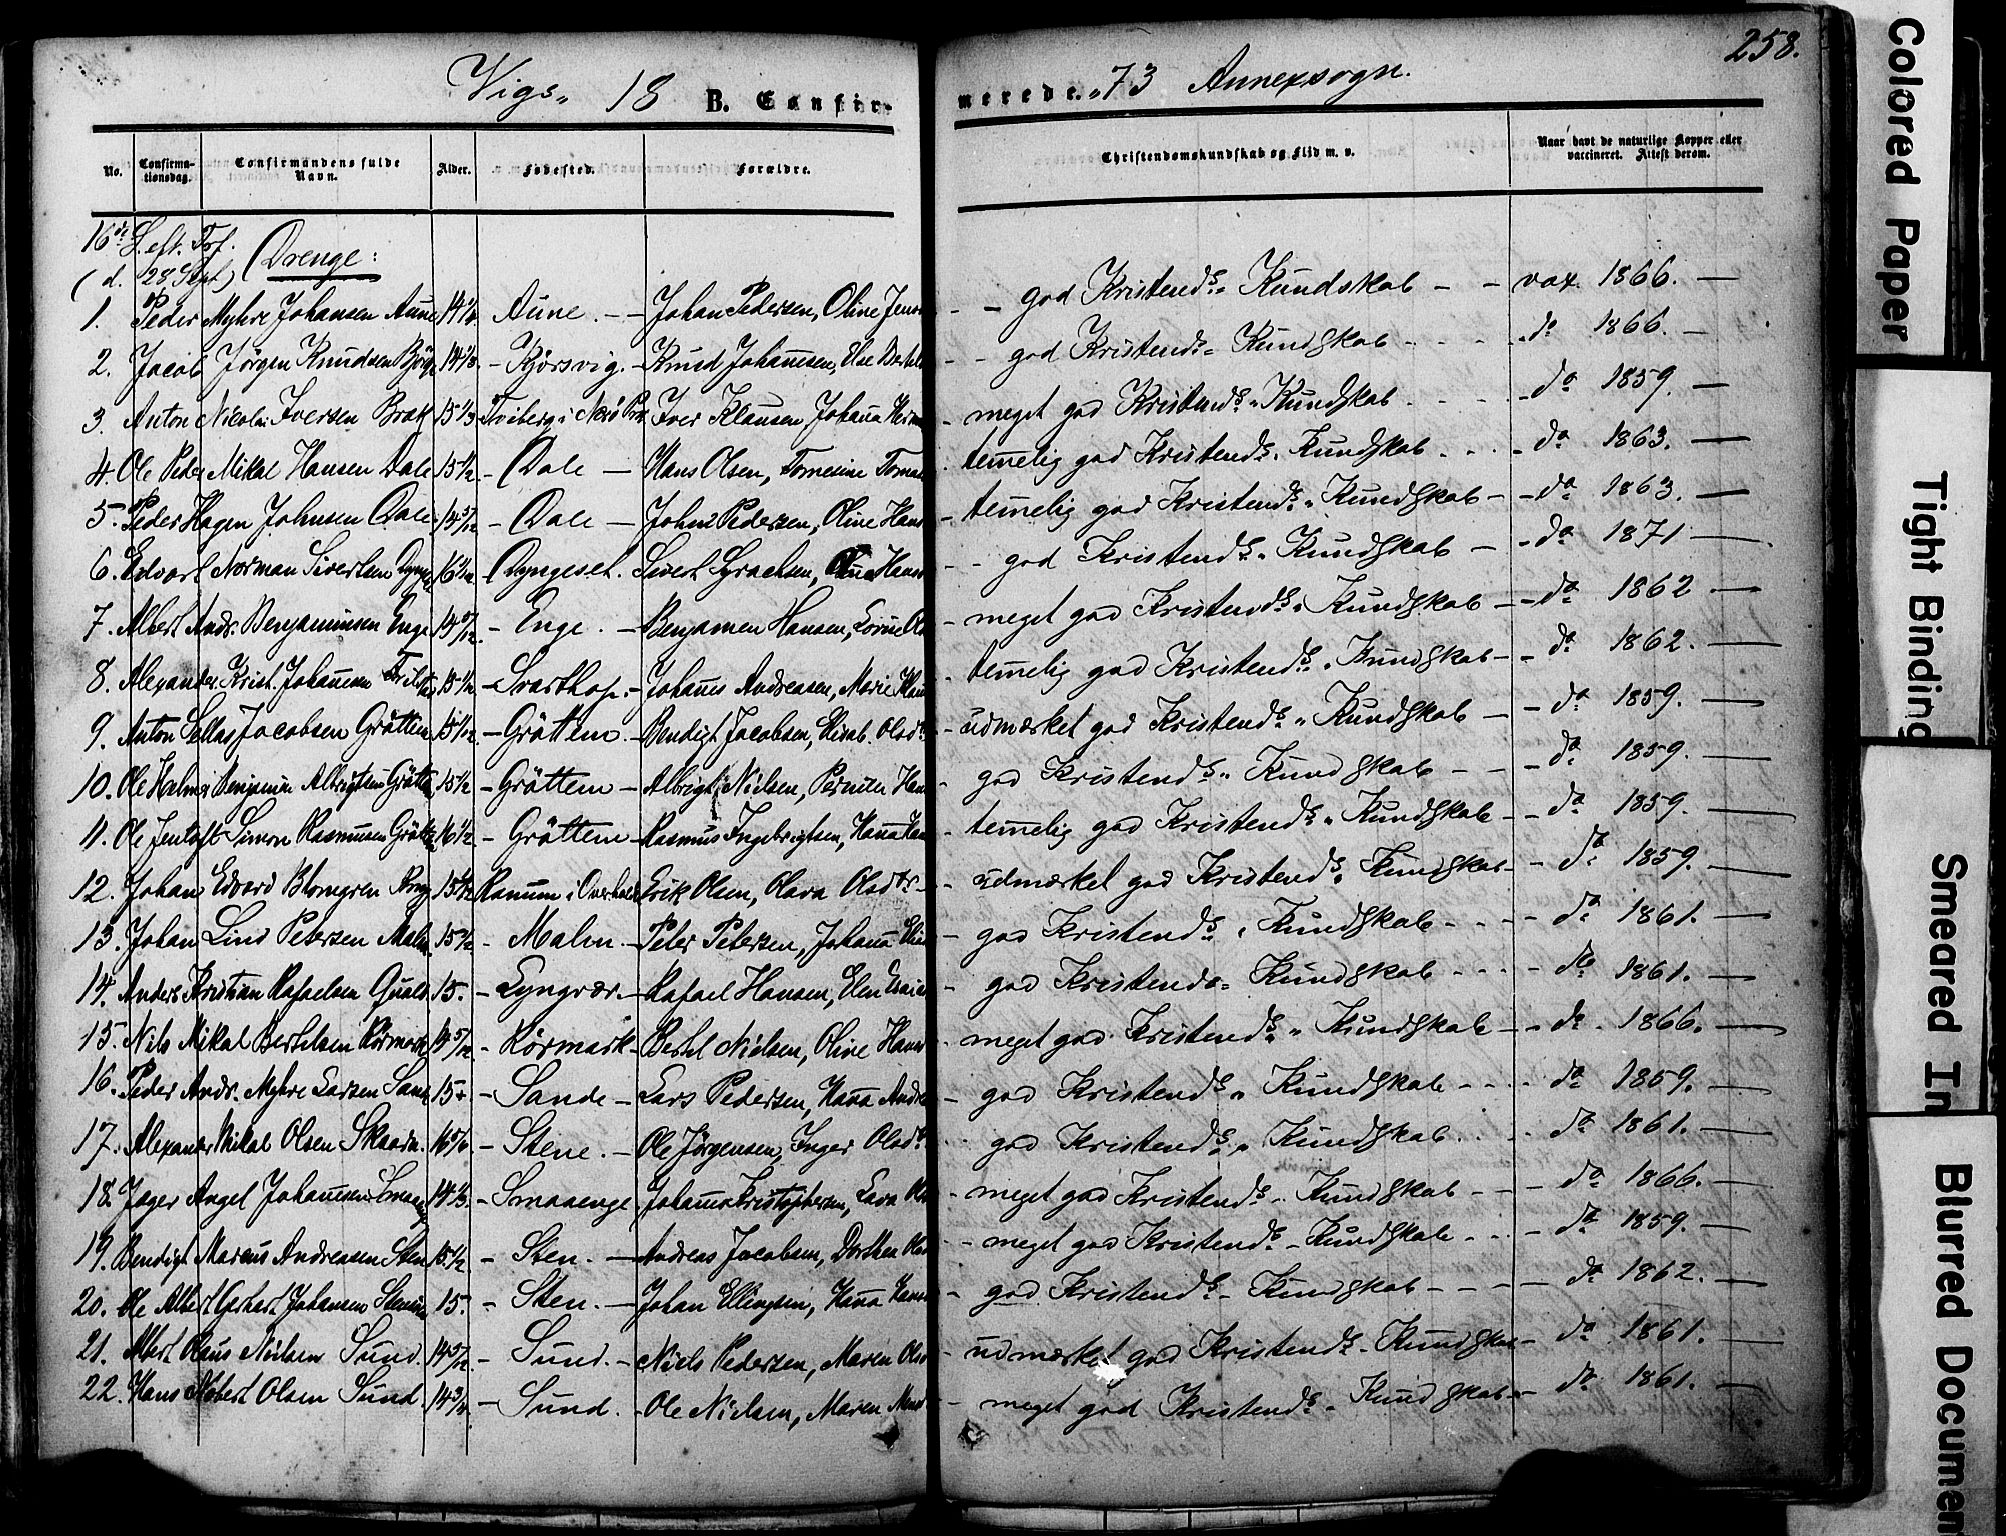 258.
Vigs„ 18 B. Confir-
merede. „73 Annexsogn.
No. Confirma-tionsdag. Confirmandens fulde Navn. Alder. Fødested. Forældre. Christendomskundskab og Flid m. v. Naar havt de naturlige Kopper eller vaccineret. Attest derom.
16de S. eft. Tref.
(d. 28 Sept) Drenge:
1. Peder Myhre Johansen Aune 14 Aune. – Johan Pedersen, Oline – god Kristends„ Kundskab – – vax. 1866. –
2. Jacob Jörgen Knudsen 14 – Kjörsvig. – Knud Johannesen, – god Kristends„ Kundskab – do 1866. –
3. Anton Nicolai Iversen Brak 15 1/3 i Nærö Iver Klausen, Johana – meget god Kristends„ Kundskab – do 1859. –
4. Ole Peder Mikal Hansen Dale 15 1/2 – Dale – Hans Olsen, – temelig god Kristends„ Kundskab – do 1863. –
5. Peder Hagen Johnsen Dale 14 5/12 – Dale – John Pedersen, Oline Hans – temelig god Kristends„ Kundskab – do 1863. –
6. Edvart Norman Sivertsen 16 – Dyngeset. Sivert Hans – god Kristends„ Kundskab – do 1871 –
7. Albert Andr. Benjaminsen Enge 14 5/12 – Enge. – Benjamen Hansen, – meget god Kristends„ Kundskab – do 1862 –
8. Alexander Krist. Johansen 15 1/2 – Svarthop. – Johanes Andreasen, Marie – temelig god Kristends„ Kundskab – do 1862. –
9. Anton Jacobsen Gröttem 15 – Gröttem. – Bendigt Jacobsen, Elisab. Olsdr – udmærket god Kristends„ Kundskab – do 1859. –
10. Ole Benjamin Albrigtsen 15 1/2 – Gröttem – Albrigt Nielsen, Pernilla Han – god Kristends„ Kundskab – do 1859. –
11. Ole Jentoft Simon Rasmussen 16 1/2 – Gröttem – Rasmus Ingebrigtsen, Hana – temelig god Kristends„ Kundskab – do 1859. –
12. Johan Edvard Blomgren 15 Ranum i Overhald Erik Olsen, Olava Olsdtr – udmærket god Kristends„ Kundskab – do 1859. –
13. Johan Lind Petersen Malm 15 – Malm – Peter Petersen, Johana – god Kristends„ Kundskab – do 1861. –
14. Anders Kristian Rafaelsen 15. – Lyngvær. – Rafael Hansen, Elen – god Kristends„ Kundskab – do 1861. –
15. Nils Mikal Bertelsen Körmark 14 5/12 – Körmark – Bertel Nielsen, Oline Hans – meget god Kristends„ Kundskab – do 1866. –
16. Peder Andr. Myhre Larsen Sand 15 – Sande – Lars Pedersen, Hana – god Kristends„ Kundskab – do 1859. –
17. Alexander Mikal Olsen 16 – Stene. – Ole Jörgensen, Inger Olsdr – god Kristends„ Kundskab – do 1861. –
18. Angel Johannesen 14 1/3. – Smaaenge. Johannes Kristophersen, – meget god Kristends„ Kundskab – do 1866. –
19. Bendigt Marcus Andreasen Sten 15 1/2. – Sten. – Andreas Jacobsen, Dorthea – meget god Kristends„ Kundskab – do 1859. –
20. Ole Albert Gerhart Johansen 15. – Sten. – Johan Ellingsen, Hana – god Kristends„ Kundskab – do 1862. –
21. Albert Olaus Nielsen Sund. 14 5/12 – Sund. – Niels Pedersen, Maren Ols – udmærket god Kristends„ Kundskab – do 1861. –
22. Hans Olsen Sund. 14 – Sund. – Ole Nielsen, Maren – meget god Kristends„ Kundskab – do 1861. –
Colored Paper
Tight Binding
Smeared In
Blurred Documen